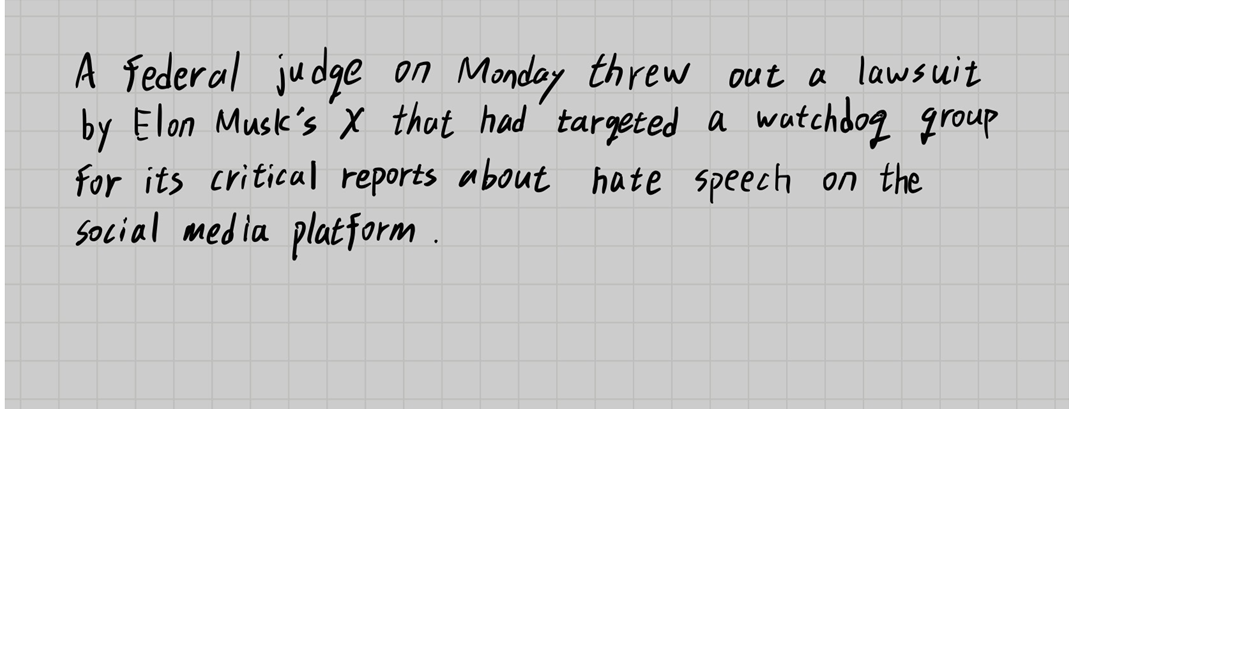 A federal judge on Monday threw out a lawsuit
by Elon Musk's X that had targeted a watchdog group
for its critical reports about hate speech on the
social media platform.